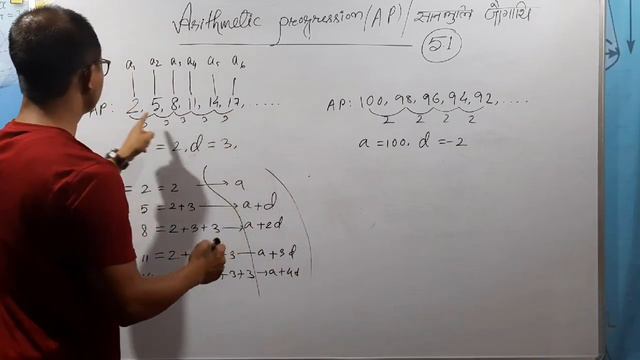 Arithmetic progression (AP) / समान्तर
5.1
a₁ a₂ a₃ a₄ a₅ a₆
AP: 2, 5, 8, 11, 14, 17, .....
3 3 3 3 3
= 2, d = 3,
2 = 2 → a
5 = 2+3 → a+d
8 = 2+3+3 → a+2d
11 = 2+ 3 → a+3d
+3+3 → a+4d
AP: 100, 98, 96, 94, 92, ....
2 2 2 2
a = 100, d = -2